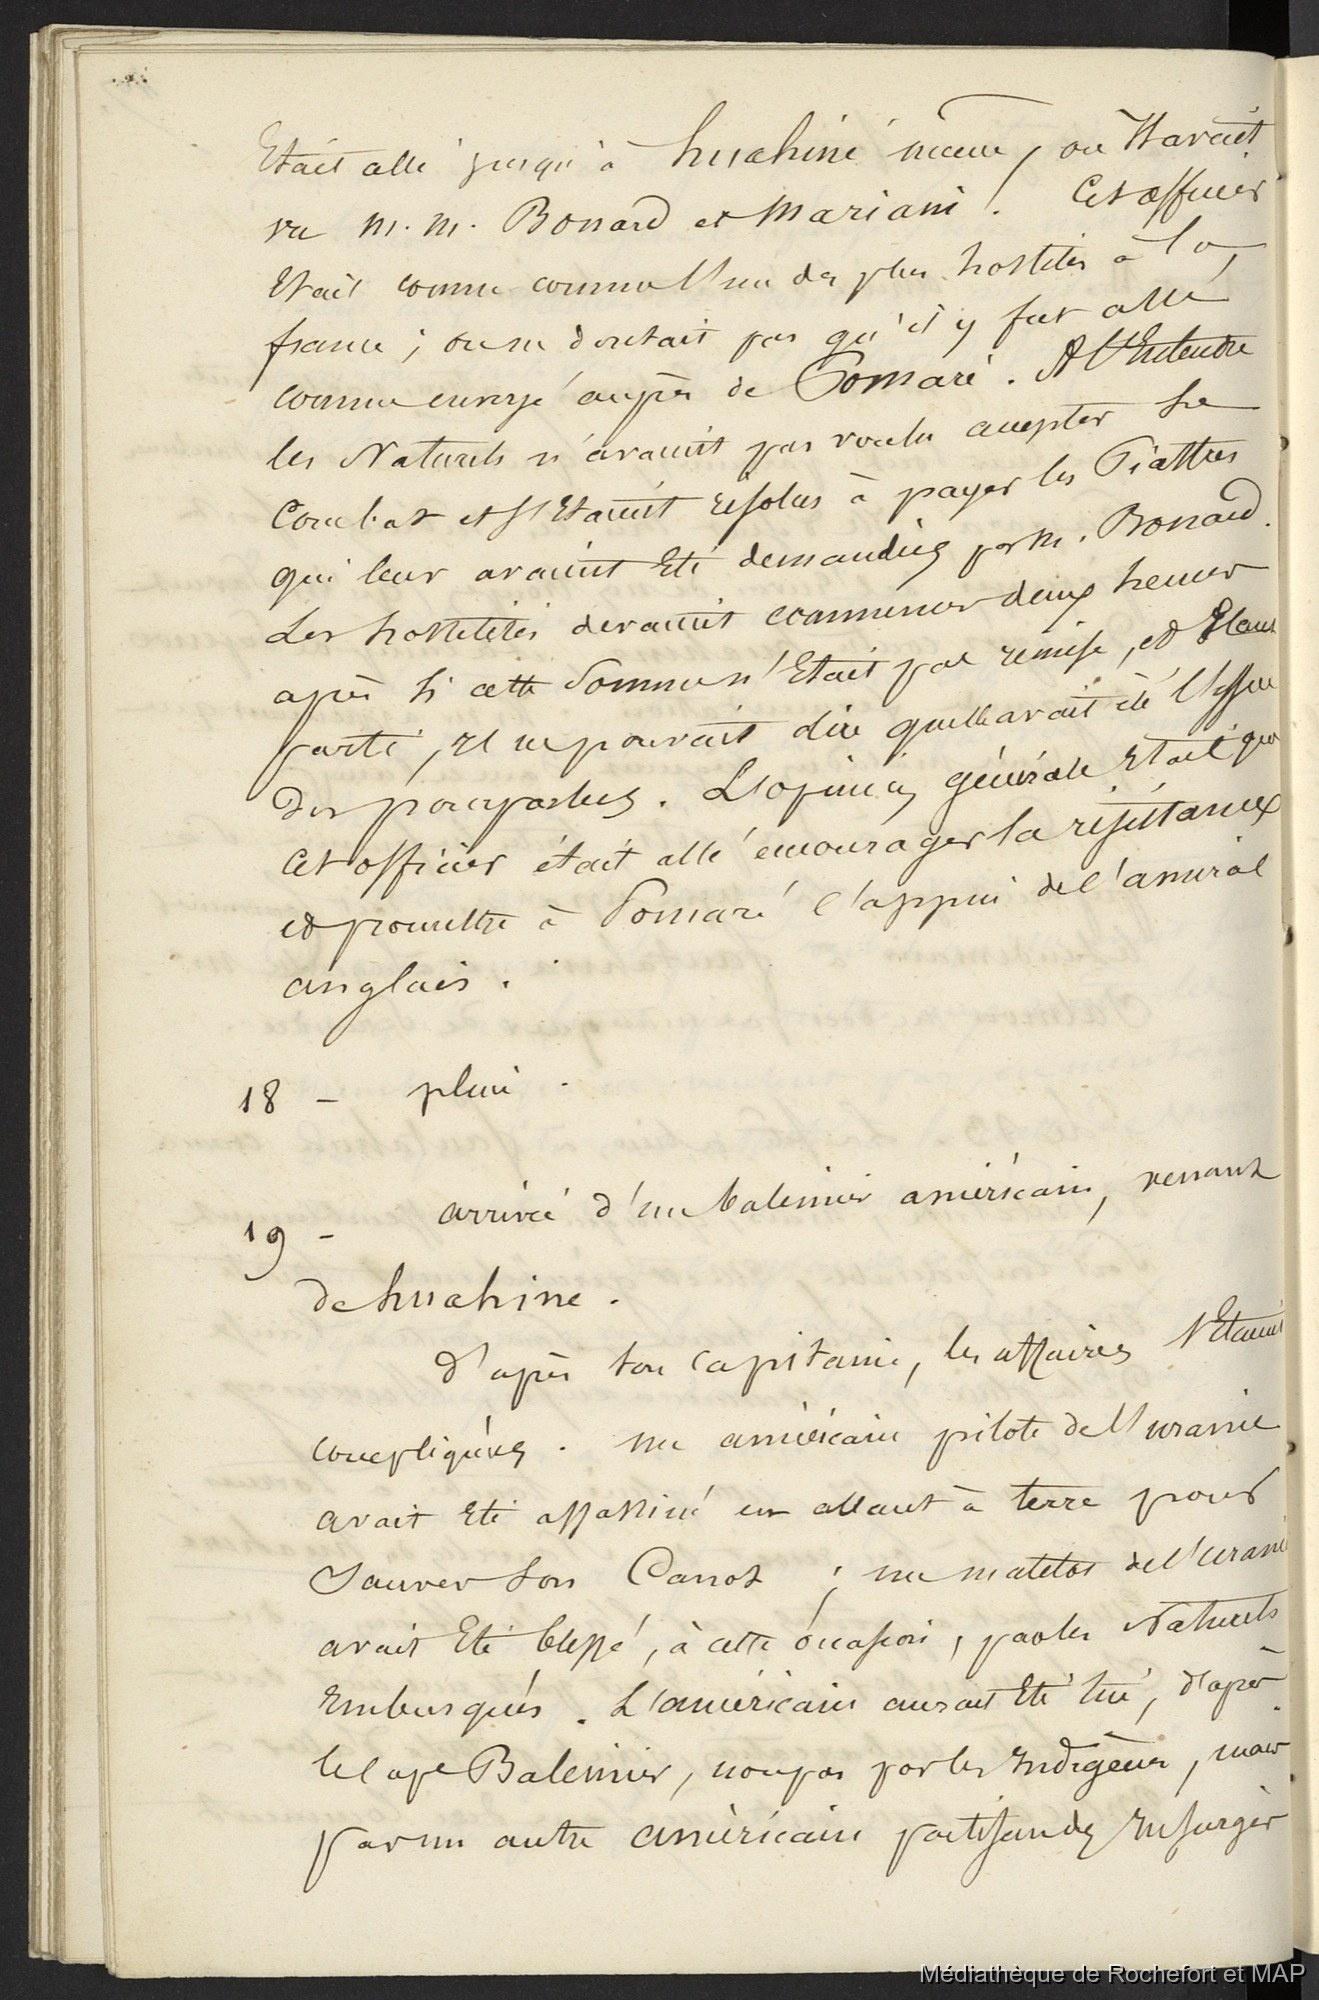 Etait allé jusqu'à huahiné même, où il avait
vu M. M. Bonard et Mariani. Cet officier
Etait connu comme l'un des plus hostiles à la
france ; on ne doutait pas qu'il y fut allé
comme envoyé auprès de Pomaré. A l'Entendre
les Naturels n'avaient pas voulu accepter le
Combat et s'Etaient résolus à payer les Piastres
qui leur avaient Eté demandées par M. Bonard.
Les hostilités devaient commencer deux heures
après si cette Somme n'Etait pas remise, et Etant
parti, Il ne pouvait dire quelle avait été l'issue
des pourparlers. L'opinion générale Etait que
cet officier était allé encourager la résistance
et promettre à Pomaré l'appui de l'amiral
anglais.
18 - pluie.
19 - arrivée d'un baleinier américain, venant
de huahine.
d'après son capitaine, les affaires s'Etaient
compliquées. un américain pilote de l'uranie
avait Eté assassiné en allant à terre pour
Sauver son Canot ; un matelot de l'uranie
avait Eté blessé, à cette occasion, par les Naturels
Embusqués. L'américain aurait Eté tué, d'après
le Cape Baleinier, non pas par les Indigènes, mais
par un autre américain partisan des Insurgés
Médiathèque de Rochefort et MAP